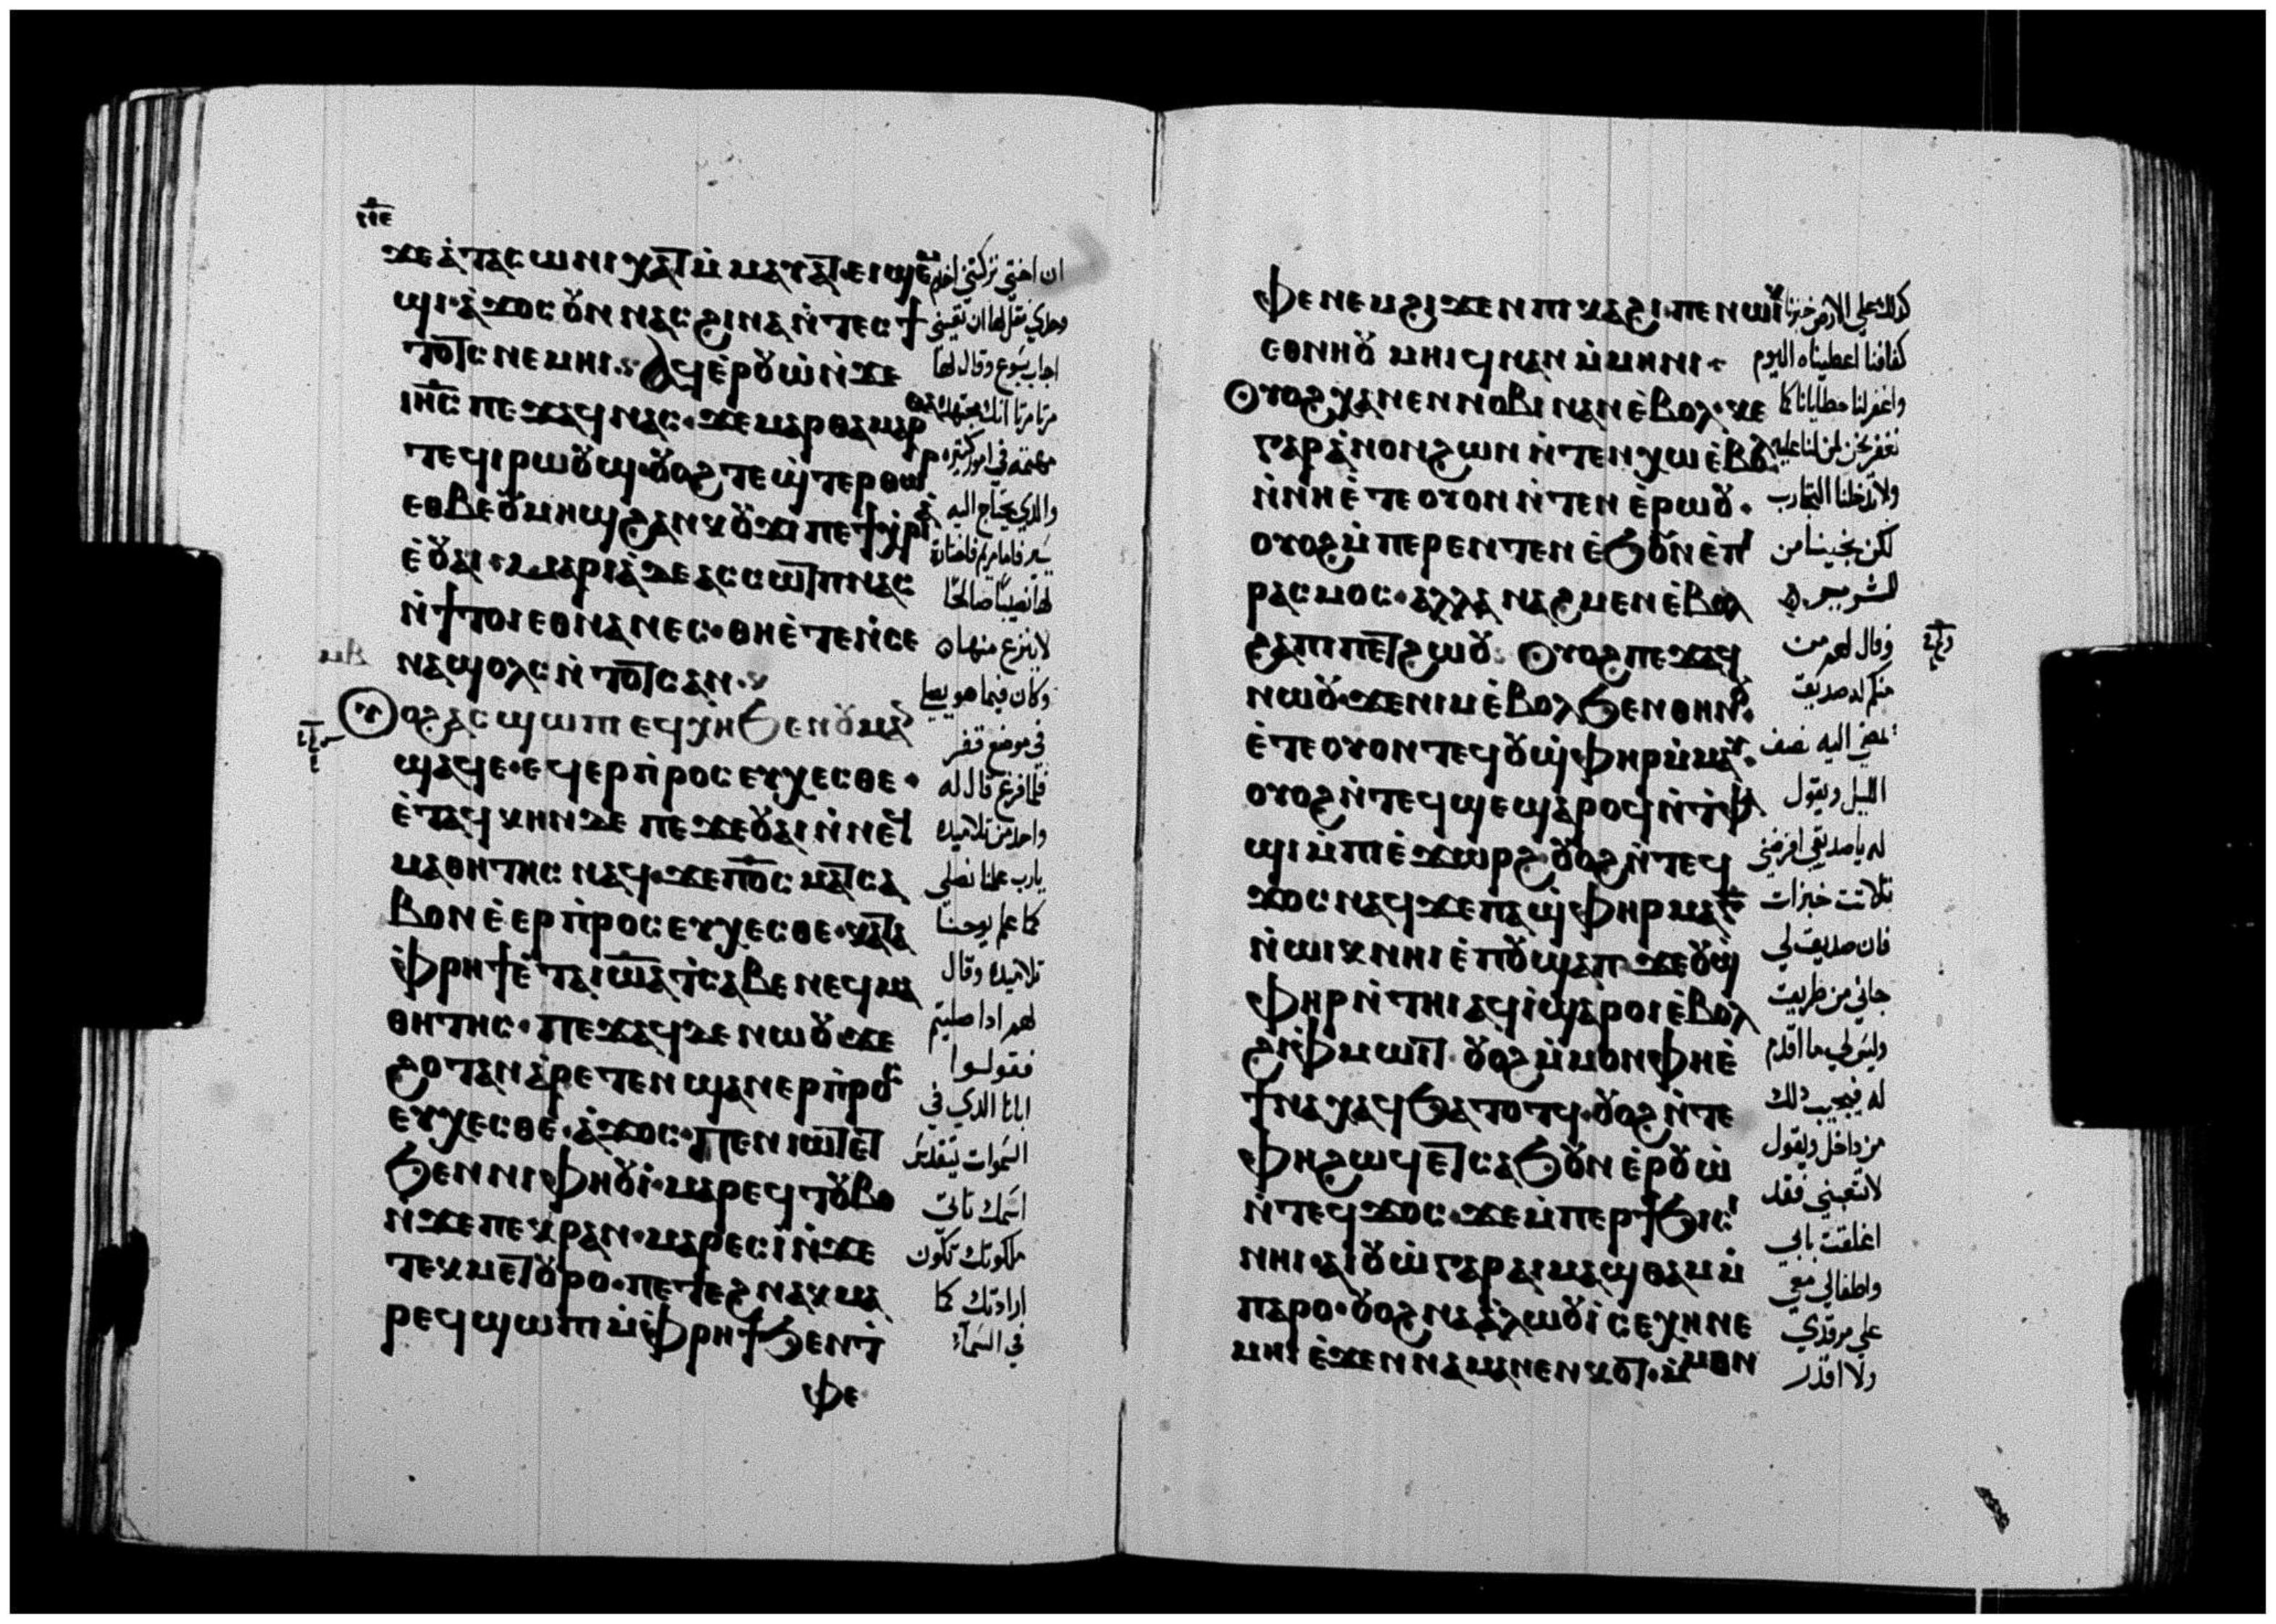 ϫⲉ ⲁ̇ ⲧⲁⲥⲱⲛⲓ ⲭⲁⲧ ⲙ̇ⲙⲁⲩⲁⲧ ⲉⲓϣⲉⲙ
ϣⲓ· ⲁ̇ϫⲟⲥ ⲟⲩⲛ ⲛⲁⲥ ϩⲓⲛⲁ ⲛ̇ⲧⲉⲥϯ
ⲧⲟⲧⲥ ⲛⲉⲙⲏⲓ· ⲁϥⲉ̇ⲣⲟⲩⲱ̇ ⲛ̇ϫⲉ
ⲓⲏⲥ ⲡⲉϫⲁϥ ⲛⲁⲥ· ϫⲉ ⲙⲁⲣⲑⲁ ⲙⲁⲣⲑⲁ
ⲧⲉϥⲓⲣⲱⲟⲩϣ· ⲟⲩⲟϩ ⲧⲉϣ̇ⲧⲉⲣⲑⲱⲣ
ⲉⲑⲃⲉ ⲟⲩⲙⲏϣ ϩⲁⲛⲕⲟⲩϫⲓ ⲡⲉⲧⲭ̇ⲣⲓⲁ
ⲉ̇ⲟⲩⲁⲓ· ⲙⲁⲣⲓⲁ ⲇⲉ ⲁⲥⲥⲱⲧⲡ ⲛⲁⲥ
ⲛ̇ϯⲧⲟⲓ ⲉⲑⲛⲁⲛⲉⲥ· ⲑⲏⲉ̇ⲧⲉ ⲛ̇ⲥⲉ
ⲛⲁϣⲟⲗⲥ ⲛ̇ⲧⲟⲧⲥ ⲁⲛ·
ⲟⲩⲟϩ ⲁⲥϣⲱⲡⲓ ⲉϥⲭⲏ ϧⲉⲛ ⲟⲩⲙⲁ ⲛ̇
ϣⲁϥⲉ· ⲉϥⲉⲣⲡ̇ⲣⲟⲥⲉⲩⲭⲉⲥⲑⲉ·
ⲉ̇ⲧⲁϥⲕⲏⲛ ⲇⲉ ⲡⲉϫⲉ ⲟⲩⲁⲓ ⲛ̇ⲛⲉϥ
ⲙⲁⲑⲏⲧⲏⲥ ⲛⲁϥ· ϫⲉ ⲡⲟⲥ ⲙⲁⲧⲥⲁ
ⲃⲟⲛ ⲉ̇ⲉⲣⲡ̇ⲣⲟⲥⲉⲩⲭⲉⲥⲑⲉ· ⲕⲁⲧⲁ
ⲫ̇ⲣⲏϯ ⲉ̇ⲧⲁ ⲓⲱⲁ ⲧⲥⲁⲃⲉ ⲛⲉϥⲙⲁ
ⲑⲏⲧⲏⲥ· ⲡⲉϫⲁϥ ⲇⲉ ⲛⲱⲟⲩ ϫⲉ
ϩⲟⲧⲁⲛ ⲁ̇ⲣⲉⲧⲉⲛϣⲁⲛⲉⲣⲡ̇ⲣⲟⲥ
ⲉⲩⲭⲉⲥⲑⲉ· ⲁ̇ϫⲟⲥ· ⲡⲉⲛⲓⲱⲧ ⲉⲧ
ϧⲉⲛ ⲛⲓⲫⲏⲟⲩⲓ̇· ⲙⲁⲣⲉϥⲧⲟⲩⲃⲟ
ⲛ̇ϫⲉ ⲡⲉⲕⲣⲁⲛ· ⲙⲁⲣⲉⲥⲓ̇ ⲛ̇ϫⲉ
ⲧⲉⲕⲙⲉⲧⲟⲩⲣⲟ· ⲡⲉⲧⲉϩⲛⲁⲕ ⲙⲁ
ⲣⲉϥϣⲱⲡⲓ ⲙ̇ⲫ̇ⲣⲏϯ ϧⲉⲛ ⲧ̇
ⲫⲉ
ان اختي تركتني اخدم
وحدي فقل لها ان تعينني
اجاب يسوع وقال لها
مرتا مرتا انك مجتهدة
مهتمه في امور كثيره
والذي يحتاج اليه
يسير فاما مريم فاختارة
لها نصيبًا صالحًا
لا ينزع منها
وكان فيما هو يصلي
في موضع قفر
فلما فرغ قال له
واحد من تلاميذه
يارب علمنا نصلي
كما علم يوحنا
تلاميذه وقال
لهم اذا صليتم
فقولوا
ابانا الذي في
السموات ليتقدس
اسمك تاتي
ملكوتك تكون
ارادتك كما
في السماء
ⲫⲉ ⲛⲉⲙ ϩⲓϫⲉⲛ ⲡⲓⲕⲁϩⲓ· ⲡⲉⲛⲱⲓⲕ
ⲉⲑⲛⲏⲟⲩ ⲙⲏⲓϥ ⲛⲁⲛ ⲙ̇ⲙⲏⲛⲓ·
ⲟⲩⲟϩ ⲭⲁ ⲛⲉⲛⲛⲟⲃⲓ ⲛⲁⲛ ⲉ̇ⲃⲟⲗ· ⲕⲉ
ⲅⲁⲣ ⲁ̇ⲛⲟⲛ ϩⲱⲛ ⲛ̇ⲧⲉⲛⲭⲱ ⲉ̇ⲃⲟⲗ
ⲛ̇ⲛⲏⲉ̇ⲧⲉ ⲟⲩⲟⲛ ⲛ̇ⲧⲉⲛ ⲉ̇ⲣⲱⲟⲩ·
ⲟⲩⲟϩ ⲙ̇ⲡⲉⲣⲉⲛⲧⲉⲛ ⲉ̇ϧⲟⲩⲛ ⲉ̇ⲡⲓ
ⲣⲁⲥⲙⲟⲥ· ⲁⲗⲗⲁ ⲛⲁϩⲙⲉⲛ ⲉ̇ⲃⲟⲗ
ϩⲁ ⲡⲓⲡⲉⲧϩⲱⲟⲩ· ⲟⲩⲟϩ ⲡⲉϫⲁϥ
ⲛⲱⲟⲩ· ϫⲉ ⲛⲓⲙ ⲉ̇ⲃⲟⲗ ϧⲉⲛ ⲑⲏⲛⲟⲩ·
ⲉ̇ⲧⲉ ⲟⲩⲟⲛⲧⲉϥ ⲟⲩϣ̇ⲫⲏⲣ ⲙ̇ⲙⲁⲩ·
ⲟⲩⲟϩ ⲛ̇ⲧⲉϥϣⲉ ϣⲁⲣⲟϥ ⲛ̇ⲧ̇ⲫⲁ
ϣⲓ ⲙ̇ⲡⲓⲉ̇ϫⲱⲣϩ· ⲟⲩⲟϩ ⲛ̇ⲧⲉϥ
ϫⲟⲥ ⲛⲁϥ ϫⲉ ⲡⲁϣ̇ⲫⲏⲣ ⲙⲁ ⲅ̅
ⲛ̇ⲱⲓⲕ ⲛⲏⲓ ⲉ̇ⲡⲟⲩϣⲁⲡ· ϫⲉ ⲟⲩϣ̇
ⲫⲏⲣ ⲛ̇ⲧⲏⲓ ⲁϥⲓ̇ ϣⲁⲣⲟⲓ ⲉ̇ⲃⲟⲗ
ϩⲓ ⲫ̇ⲙⲱⲓⲧ· ⲟⲩⲟϩ ⲙ̇ⲙⲟⲛ ⲫⲏⲉ̇
ϯⲛⲁⲭⲁϥ ϧⲁⲧⲟⲧϥ· ⲟⲩⲟϩ ⲛ̇ⲧⲉ
ⲫⲏ ϩⲱϥ ⲉⲧⲥⲁϧⲟⲩⲛ ⲉ̇ⲣⲟⲩⲱ̇
ⲛ̇ⲧⲉϥϫⲟⲥ· ϫⲉ ⲙ̇ⲡⲉⲣϯϧⲓⲥⲓ
ⲛⲏⲓ· ⲁⲓⲟⲩⲱ̇ ⲅⲁⲣ ⲁⲓⲙⲁϣⲑⲁⲙ ⲙ̇
ⲡⲁⲣⲟ· ⲟⲩⲟϩ ⲛⲁⲁ̇ⲗⲱⲟⲩⲓ̇ ⲥⲉⲭⲏ ⲛⲉ
ⲙⲏⲓ ⲉ̇ϫⲉⲛ ⲛⲁⲙⲁⲛⲉⲛⲕⲟⲧ· ⲙ̇ⲙⲟⲛ
كذلك علي الارض خبزنا
كفافنا اعطيناه اليوم
واغفر لنا خطايانا كما
نغفر نحن لمن لنا عليه
ولا تدخلنا التجارب
لكن نجينا من
الشرير
وقال لهم من
منكم له صديق
يمضي اليه نصف
الليل ويقول
له يا صديقي اقرضني
ثلاثت خبزات
فان صديق لي
جاني من طريق
وليس لي ما اقدم
له فيجيب ذلك
من داخل ويقول
لا تتعبني فقد
اغلقت بابي
واطفالي معي
علي مرقدي
ولا اقدر